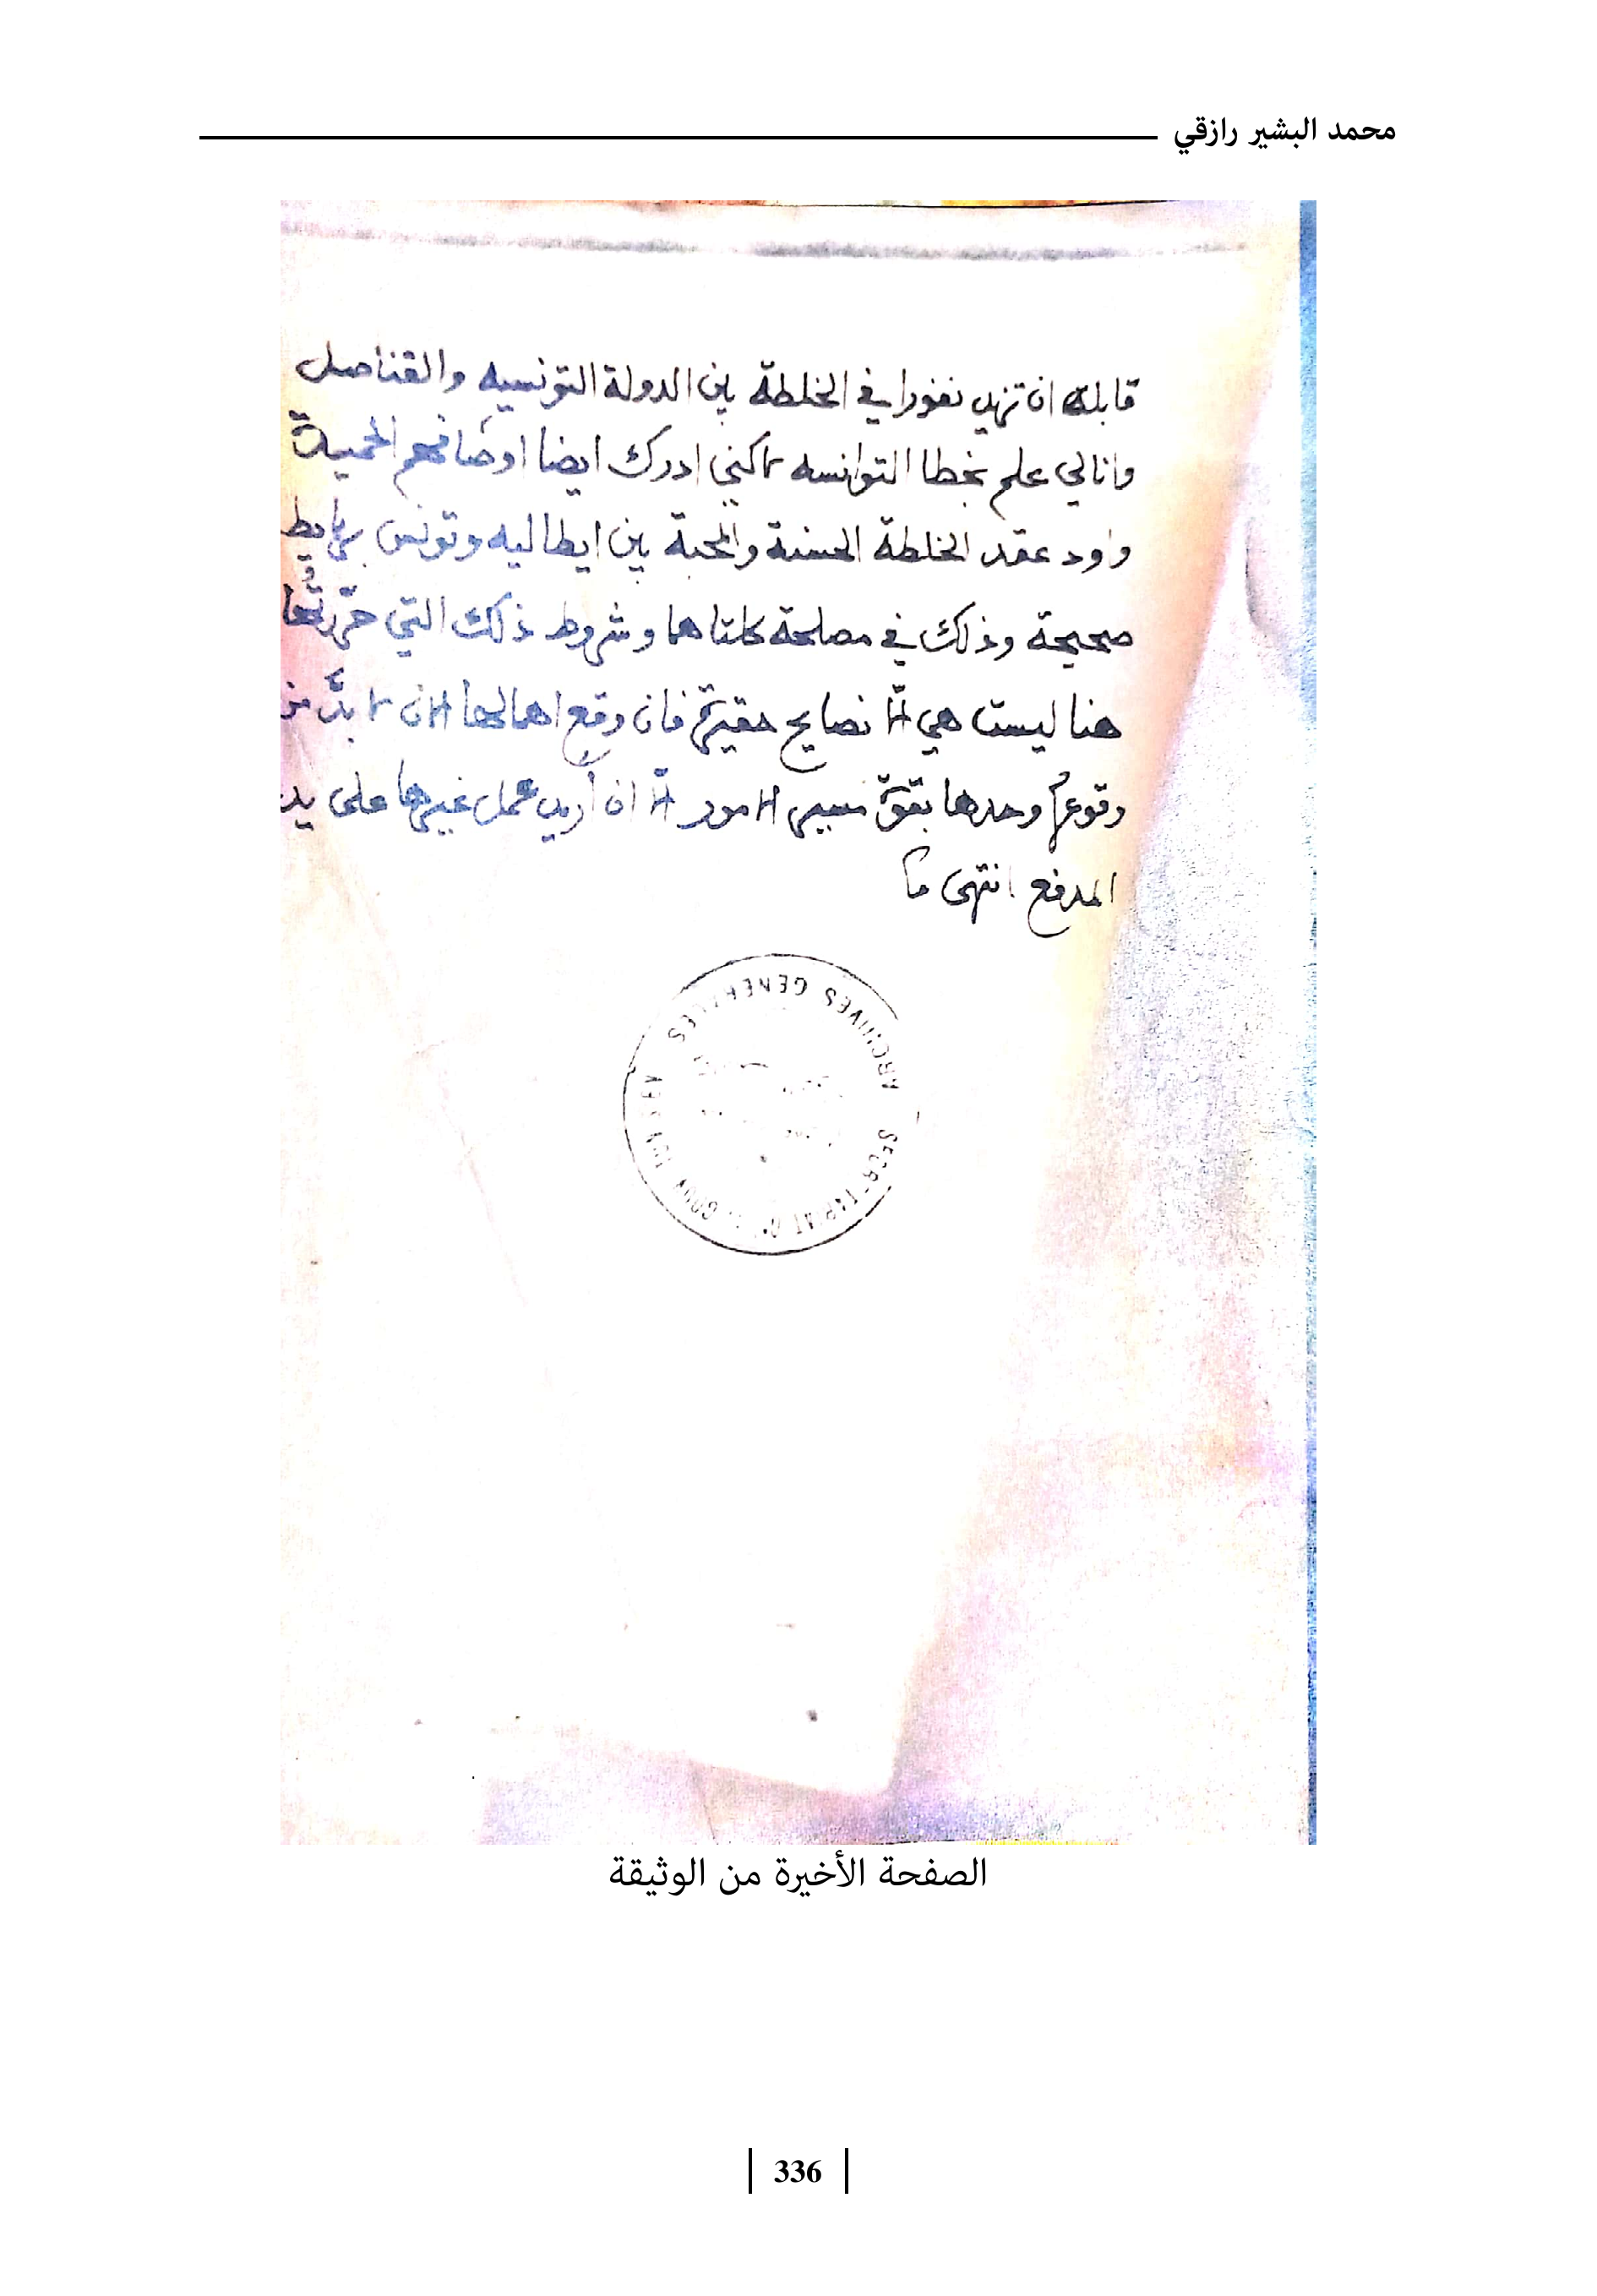 محمد البشير رازقي
قابلة ان تزيد نفورا في الخلطة بين الدولة التونسيه والقناصل
وانالي علم بخطا التوانسه لاكنني ادرك ايضا اوصافهم الحميدة
واود عقد الخلطة الحسنة والمحبة بين ايطاليه وتونس برابط
صحيحة وذلك في مصلحة كلتاهما وشروط ذلك التي حررتُها
هنا ليست هي الّا نصايح حقيرة فان وقع اهمالها الان لا بدَّ من
وقوعها وحدها بقوّة مسير الامور الّا ان أريد عمل غيرها على يد
المدفع انتهى
ARCHIVES GENERALES
الصفحة الأخيرة من الوثيقة
336